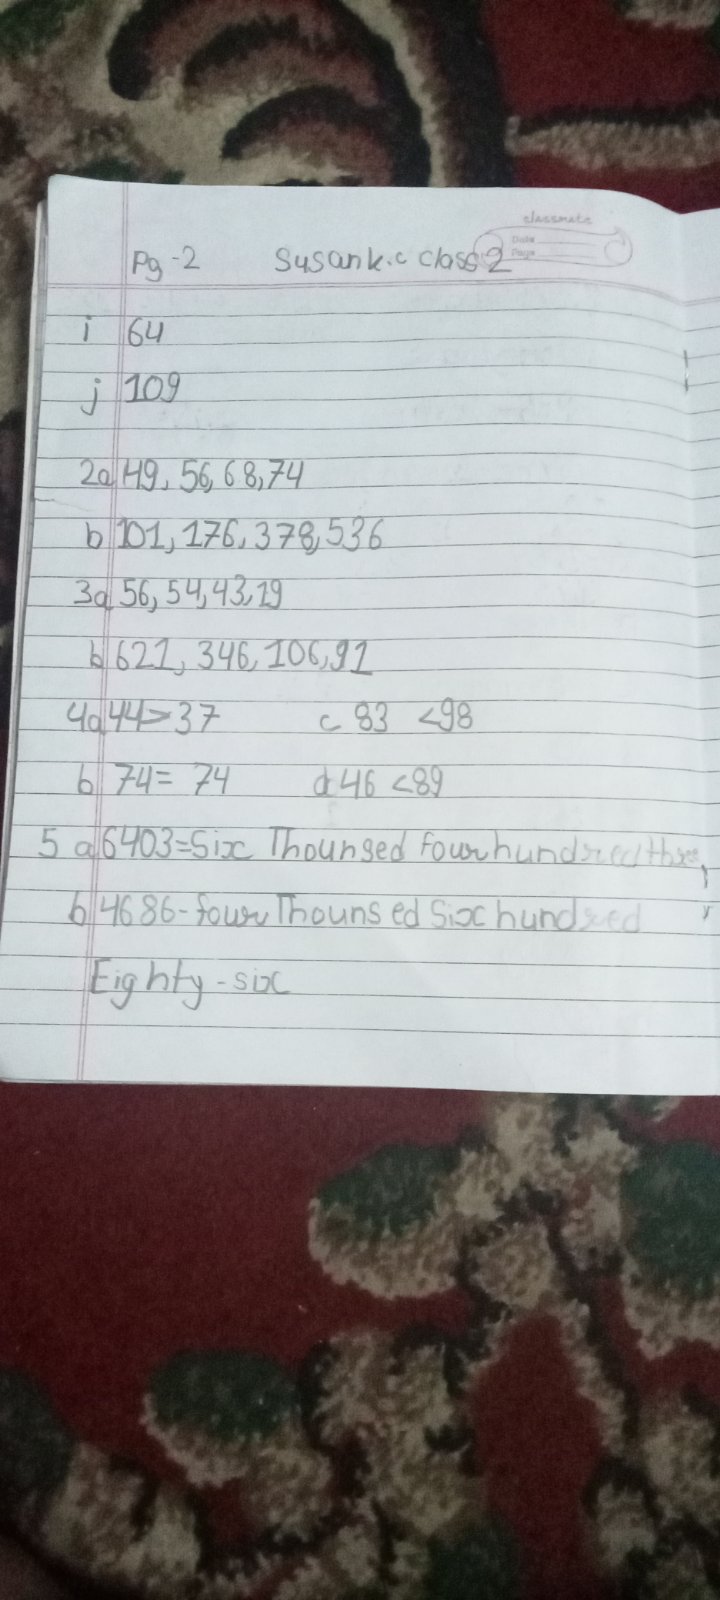 classmate
Date
Page
Pg-2 Susank.c class 2
i 64
j 109
2a 49, 56, 68, 74
b 101, 176, 378, 536
3a 56, 54, 43, 19
b 621, 346, 106, 91
4a 44 > 37 c 83 < 98
b 74 = 74 d 46 < 89
5 a 6403 = Six Thounsed four hundred three
b 4686 - four Thounsed Six hundred
Eighty - six